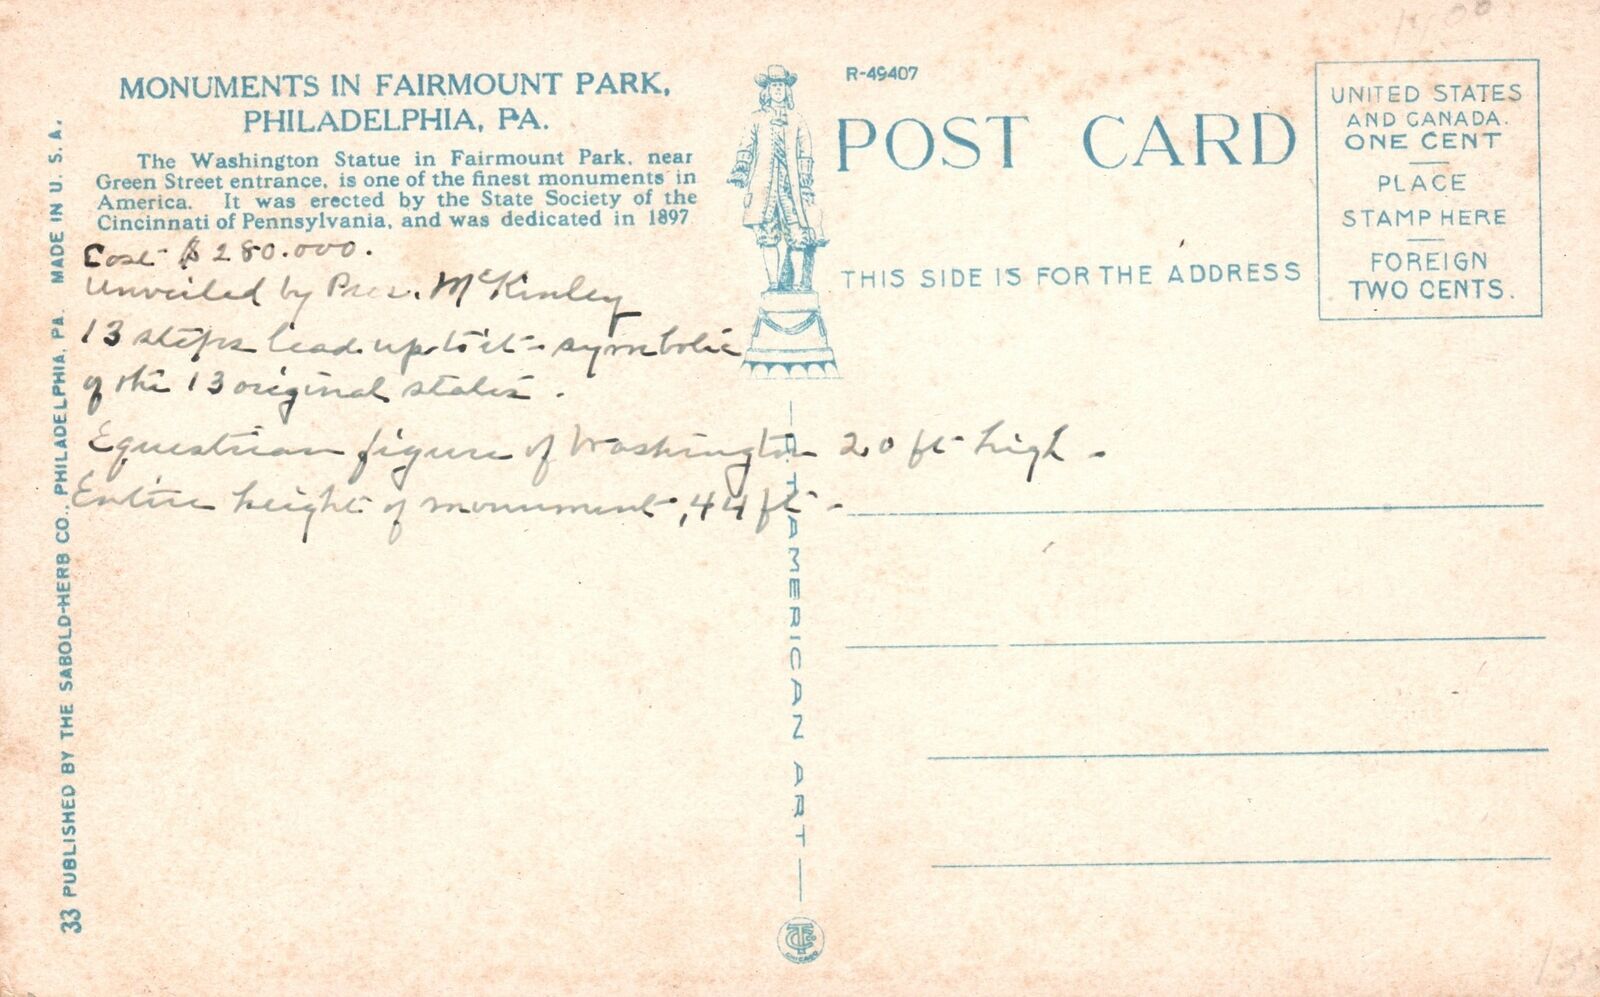 MONUMENTS IN FAIRMOUNT PARK,
PHILADELPHIA, PA.
The Washington Statue in Fairmount Park, near
Green Street entrance, is one of the finest monuments in
America. It was erected by the State Society of the
Cincinnati of Pennsylvania, and was dedicated in 1897
Cost $280.000.
Unveiled by Pres. McKinley
13 steps lead up to it - symbolic
of the 13 original states.
Equestrian figure of Washington 20 ft high -
Entire height of monument, 44 ft -
33 PUBLISHED BY THE SABOLD-HERB CO., PHILADELPHIA, PA. MADE IN U. S. A.
R-49407
POST CARD
THIS SIDE IS FOR THE ADDRESS
UNITED STATES
AND CANADA.
ONE CENT
PLACE
STAMP HERE
FOREIGN
TWO CENTS.
C.T. AMERICAN ART
CHICAGO